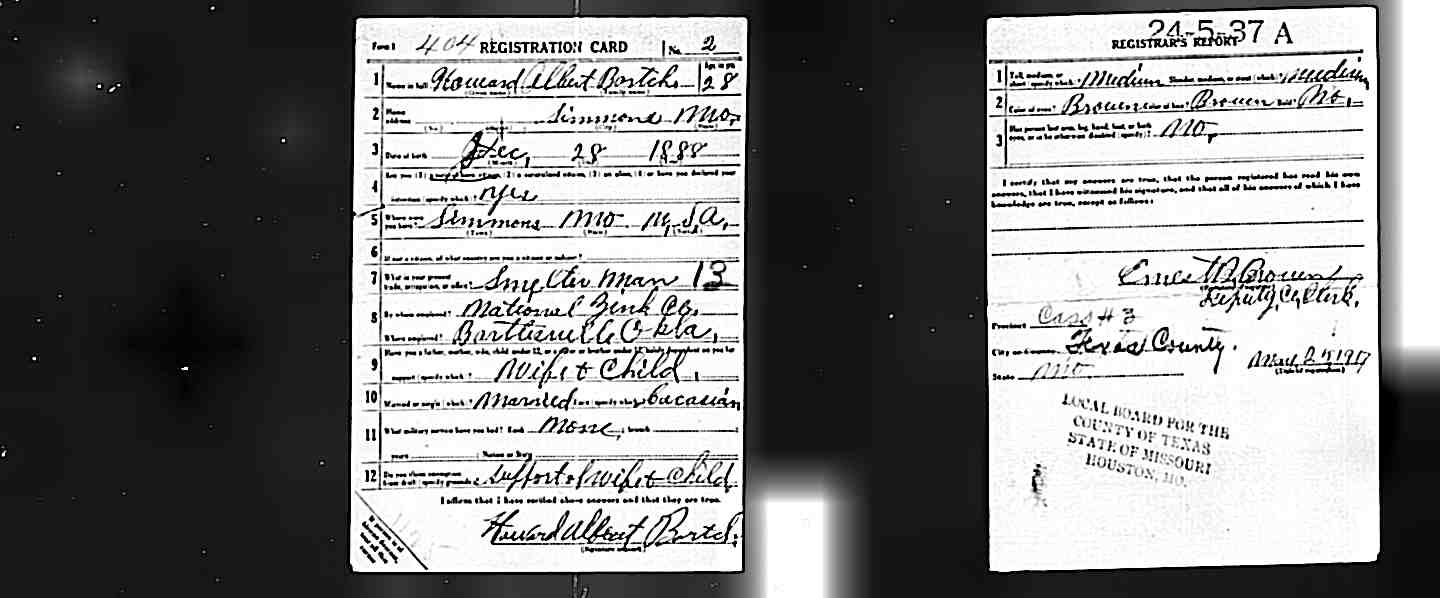 Form 1 404 REGISTRATION CARD No. 2
1 Name in full Howard Albert Bortch Age, in yrs. 28
(Given name) (Family name)
2 Home address Simmons Mo.
(No.) (Street) (City) (State)
3 Date of birth Dec, 28 1888
(Month) (Day) (Year)
4 Are you (1) a natural-born citizen, (2) a naturalized citizen, (3) an alien, (4) or have you declared your
intention (specify which)? yes
5 Where were you born? Simmons Mo U.S.A.
(Town) (State) (Nation)
6 If not a citizen, of what country are you a citizen or subject?
7 What is your present trade, occupation, or office? Smelter man 13
8 By whom employed? National Zink Co.
Where employed? Bartlesville Okla,
9 Have you a father, mother, wife, child under 12, or a sister or brother under 12, solely dependent on you for
support (specify which)? Wife & Child,
10 Married or single (which)? Married Race (specify which)? Cucasian
11 What military service have you had? Rank None, ; branch
years ; Nation or State
12 Do you claim exemption from draft (specify grounds)? Support of Wife & Child
I affirm that I have verified above answers and that they are true.
Howard Albert Bortch
(Signature or mark)
24-5-37 A
REGISTRAR'S REPORT
1 Tall, medium, or short (specify which)? Medium Slender, medium, or stout (which)? Medium
2 Color of eyes? Brown Color of hair? Brown Bald? No.
3 Has person lost arm, leg, hand, foot, or both eyes, or is he otherwise disabled (specify)? No,
I certify that my answers are true, that the person registered has read his own
answers, that I have witnessed his signature, and that all of his answers of which I have
knowledge are true, except as follows:
Ernest R. Brown
Deputy Co, Clerk.
Precinct Cass # 3
City or County Texas County.
State Mo.
(Date of registration)
LOCAL BOARD FOR THE
COUNTY OF TEXAS
STATE OF MISSOURI
HOUSTON, MO.